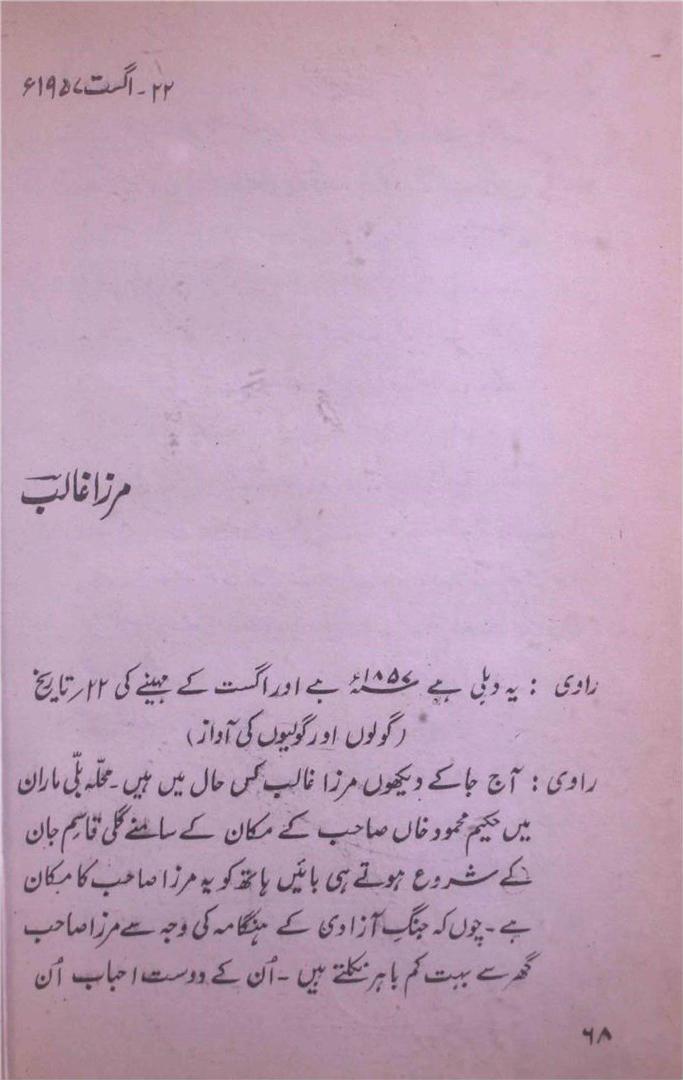 ۲۲۔ اگست ۱۹۵۷ء
مرزا غالب
راوی : یہ دہلی ہے ۱۸۵۷ء ہے اور اگست کے مہینے کی ۲۲؍ تاریخ
(گولوں اور گولیوں کی آواز)
راوی : آج جا کے دیکھوں مرزا غالب کس حال میں ہیں۔ محلّہ بلّی ماران
میں حکیم محمود خاں صاحب کے مکان کے سامنے گلی قاسم جان
کے شروع ہوتے ہی بائیں ہاتھ کو یہ مرزا صاحب کا مکان
ہے۔ چوں کہ جنگِ آزادی کے ہنگامہ کی وجہ سے مرزا صاحب
گھر سے بہت کم باہر نکلتے ہیں۔ اُن کے دوست احباب اُن
۶۸